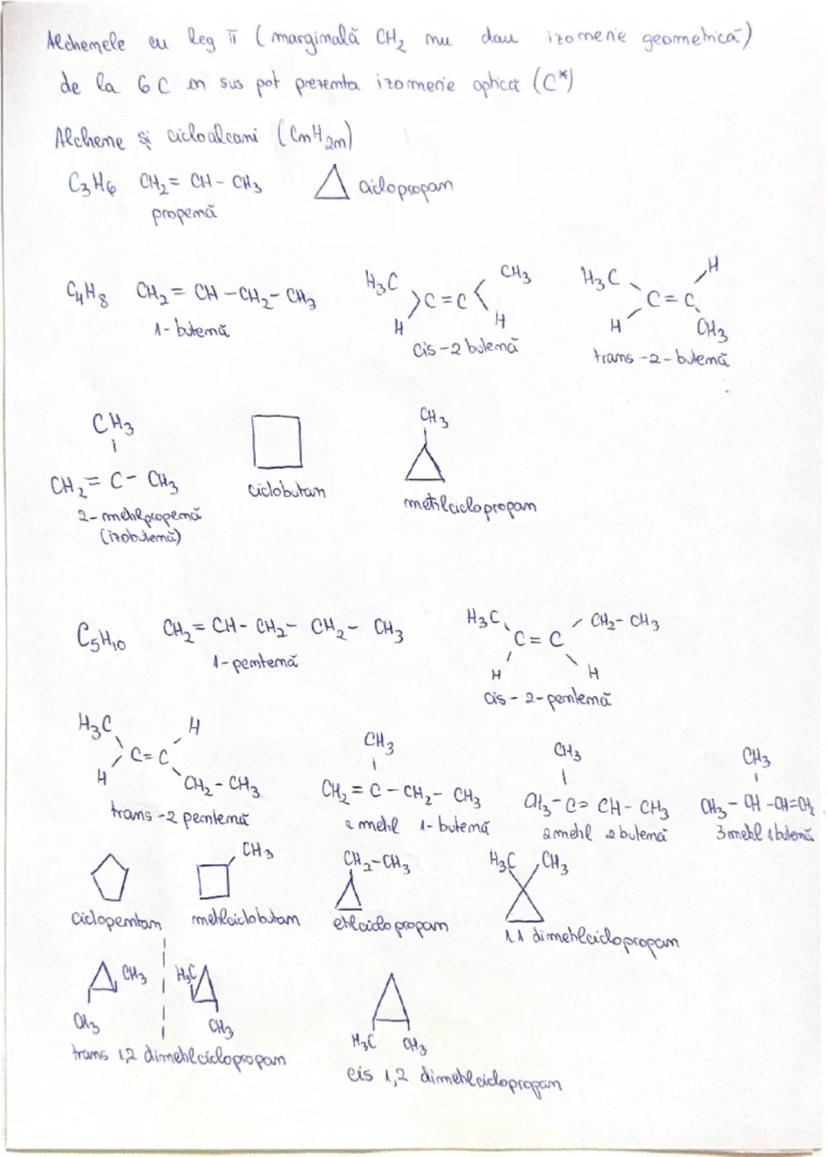 Alchemele cu leg π (marginală CH2 nu dau izomerie geometrică)
de la 6C in sus pot prezenta izomerie optica (C*)
Alchene și cicloalcani (CnH2n)
C3H6 CH2 = CH - CH3 ciclopropan
propenă
C4H8 CH2 = CH - CH2 - CH3
1-butenă
H3C CH3
C = C
H H
cis-2 butenă
H3C H
C = C
H CH3
trans-2-butenă
CH3
CH2 = C - CH3
2-metilpropenă
(izobutenă)
ciclobutan
CH3
metilciclopropan
C5H10 CH2 = CH - CH2 - CH2 - CH3
1-pentenă
H3C CH2 - CH3
C = C
H H
cis-2-pentenă
H3C H
C = C
H CH2 - CH3
trans-2 pentenă
CH3
CH2 = C - CH2 - CH3
2 metil 1-butenă
CH3
CH3 - C = CH - CH3
2 metil 2 butenă
CH3
CH3 - CH - CH = CH2
3 metil 1 butenă
ciclopentan
CH3
metilciclobutan
CH2-CH3
etilciclopropan
H3C CH3
1,1 dimetilciclopropan
CH3 H3C
CH3 CH3
trans 1,2 dimetilciclopropan
H3C CH3
cis 1,2 dimetilciclopropan